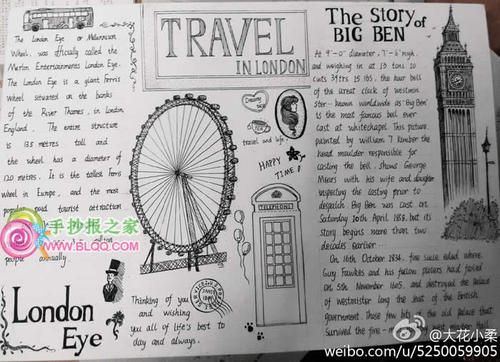 The London Eye or Millennium
Wheel, was officially called the
Merlin Entertainments London Eye.
The London Eye is a giant ferris
Wheel situated on the banks
of the River Thames, in London,
England. The entire structure
is 135 meters tall and
the wheel has a diameter of
120 metres. It is the tallest ferris
wheel in Europe, and the most
popular paid tourist attraction
people annually
手抄报之家
www.SLQQ.COM
London
Eye
TRAVEL
IN LONDON
travel and life.
HAPPY
TIME!
TELEPHONE
Thinking of you
and wishing
you all of life's best to
day and always.
The Story of
BIG BEN
At 9'-0" diameter, 7'-6" high,
and weighing in at 13 tons 10
cwts 3qtrs 15 lbs, the hour bell
of the great clock of westmin
ster - known worldwide as 'Big Ben'
is the most famous bell ever
cast at whitechapel. This picture,
painted by william T Kimber the
head moulder responsible for
casting the bell, shows George
Mears with his wife and daughter
inspecting the casting prior to
despatch. Big Ben was cast on
Saturday 10th April 1858, but its
story begins more than two
decades earlier...
On 16th October 1834, fire succeeded where
Guy Fawkes and his fellow plotters had failed
on 5th November 1605, and destroyed the palace
of westminster long the seat of the British
government. Those few of the old palace that
survived the fire -
@大花小柔
weibo.com/u/5250059905